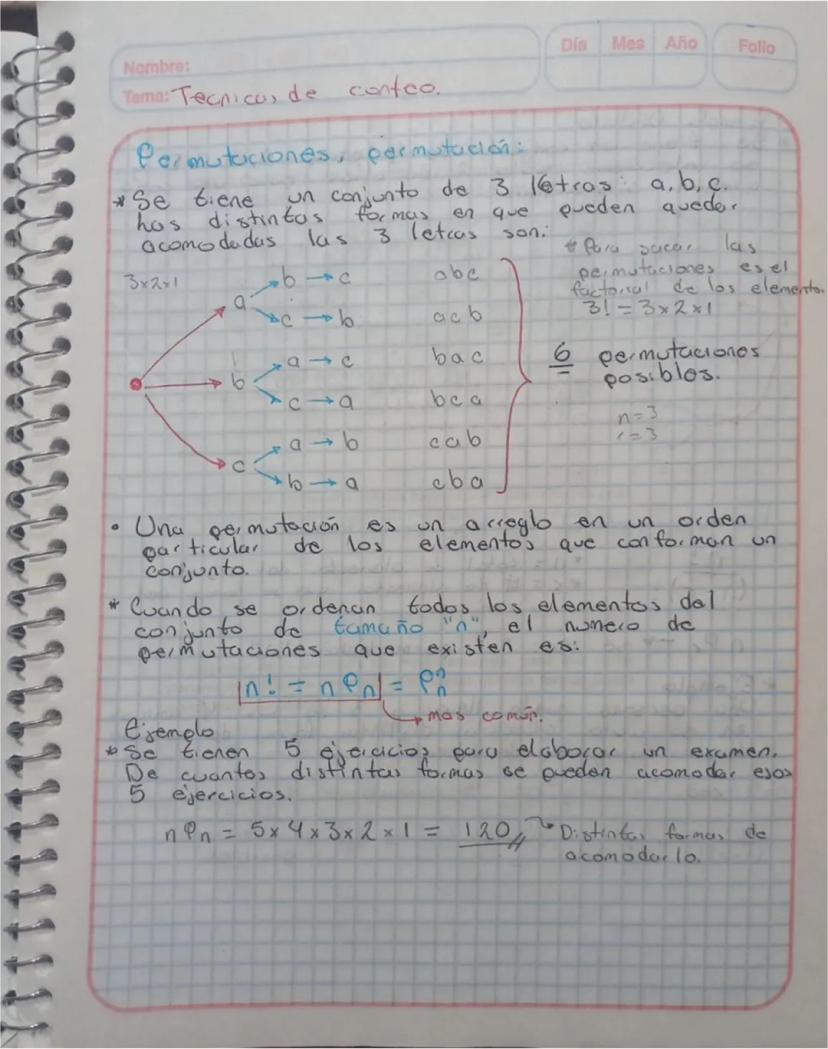 Nombre:
Día Mes Año
Folio
Tema: Tecnicas de conteo.
Permutaciones, permutación:
* Se tiene un conjunto de 3 letras: a, b, c.
has distintas formas en que pueden quedar
acomodadas las 3 letras son:
* Para sacar las
permutaciones es el
factorial de los elementos.
3! = 3x2x1
3x2x1
a b → c abc
c → b acb
b a → c bac
c → a bca
c a → b cab
b → a cba
6 permutaciones
posibles.
n=3
r=3
• Una permutación es un arreglo en un orden
particular de los elementos que conforman un
conjunto.
* Cuando se ordenan todos los elementos del
conjunto de tamaño "n", el numero de
permutaciones que existen es:
n! = nPn = Pnn
→ mas común.
Ejemplo
* Se tienen 5 ejercicios para elaborar un examen.
De cuantas distintas formas se pueden acomodar esos
5 ejercicios.
nPn = 5x4x3x2x1 = 120 → Distintas formas de
acomodarlo.